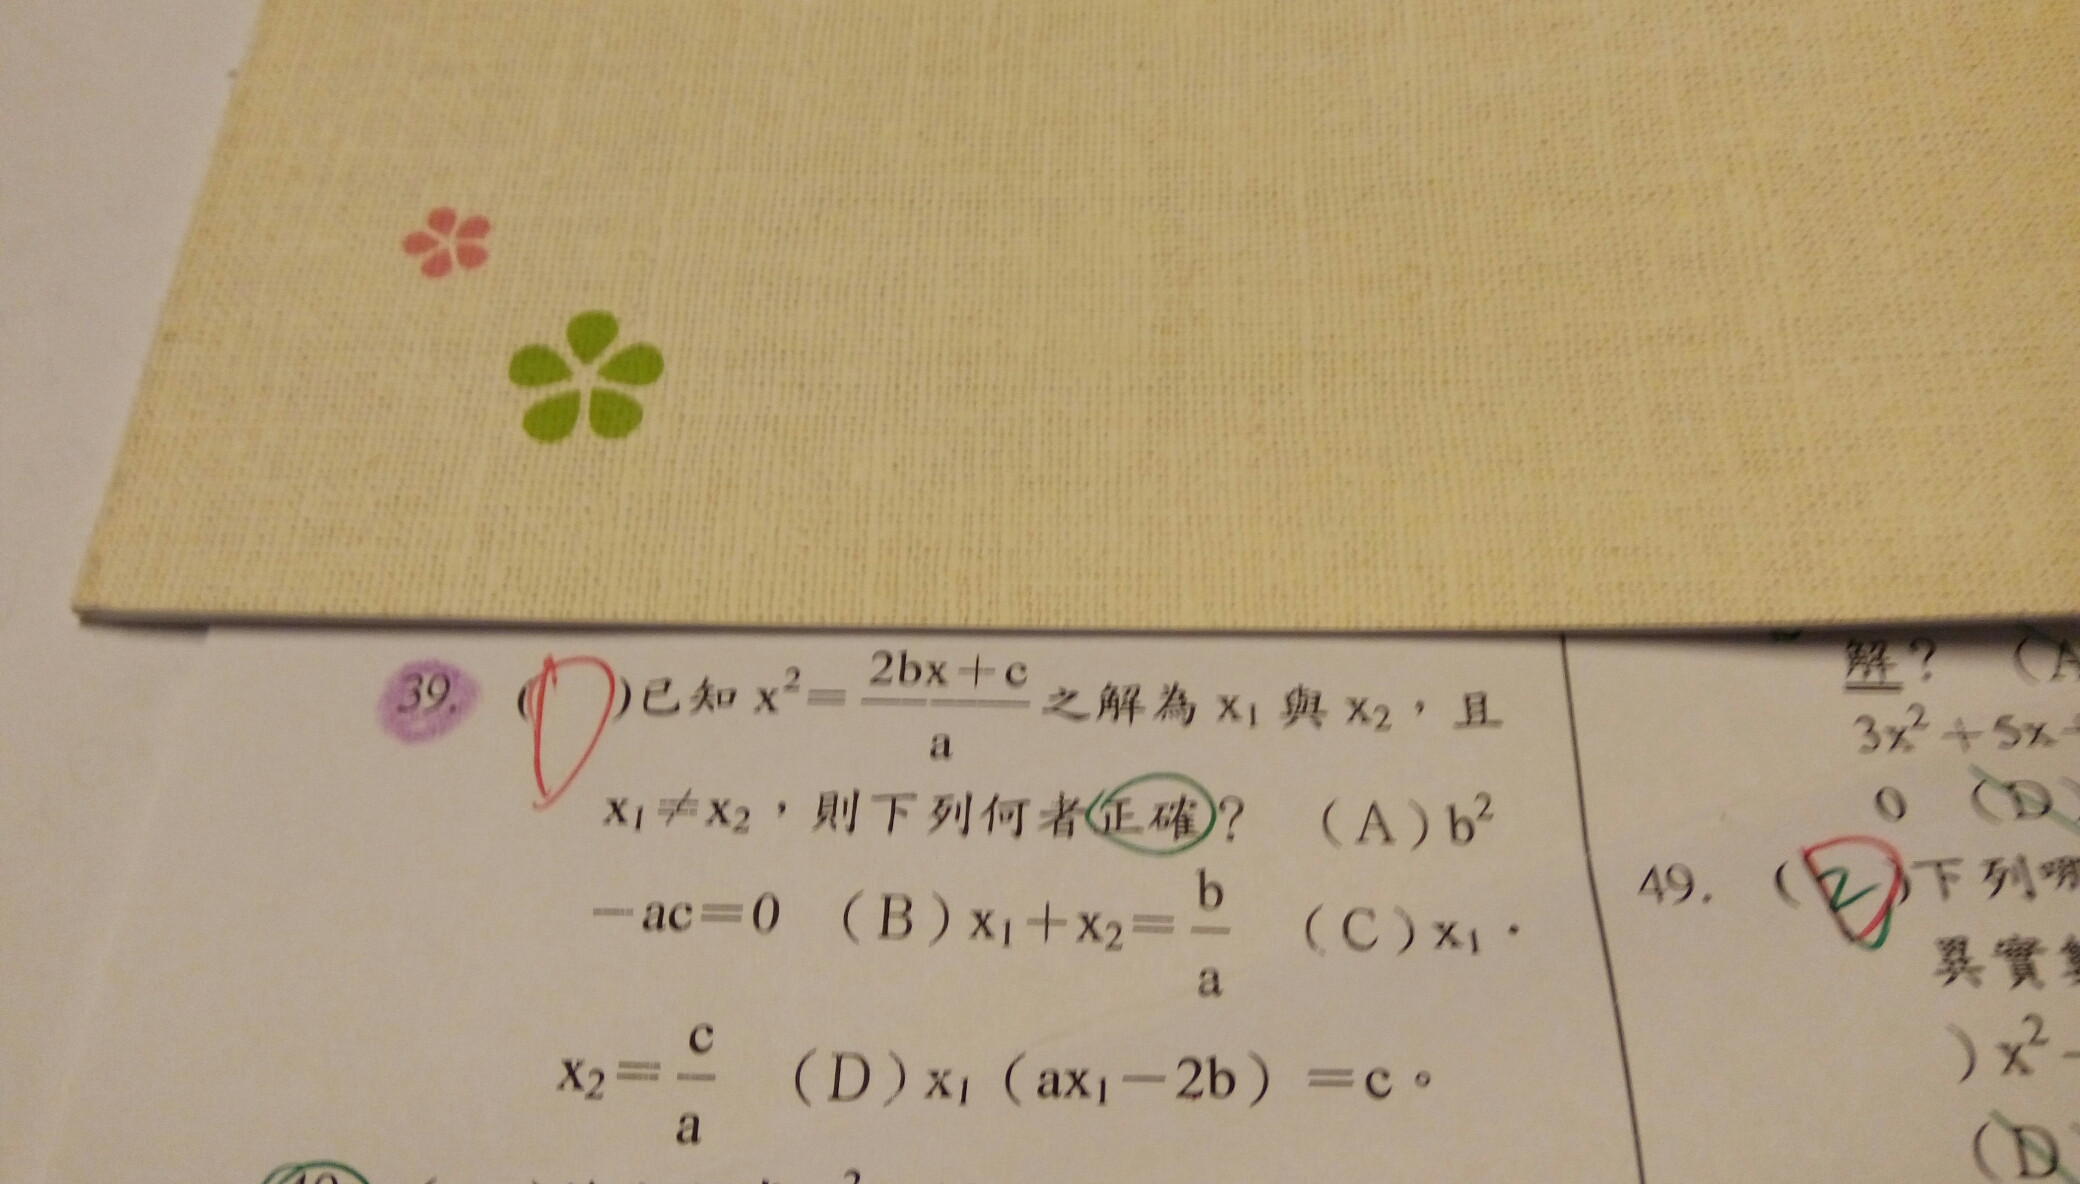 39. (D)已知 x²= 2bx+c / a 之解為 x₁ 與 x₂,且
x₁≠x₂,則下列何者正確? (A)b²
-ac=0 (B)x₁+x₂= b / a (C)x₁·
x₂= c / a (D)x₁(ax₁-2b)=c。
解? (A
3x²+5x
0 (D)
49. ( )下列哪
異實
)x²-
(D